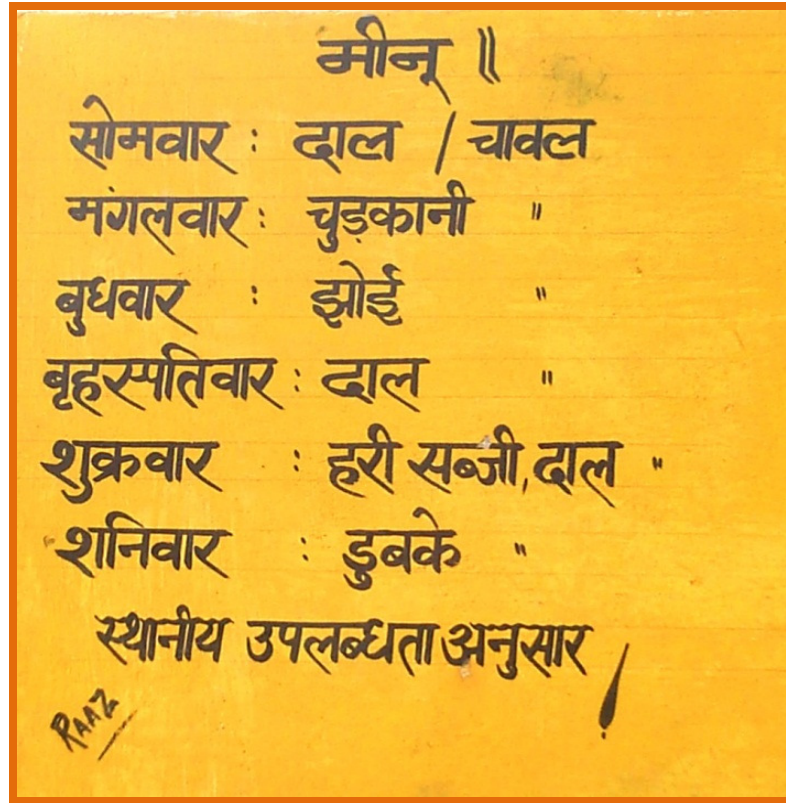 मीनू ॥
सोमवार : दाल / चावल
मंगलवार : चुड़कानी "
बुधवार : झोई "
बृहस्पतिवार : दाल "
शुक्रवार : हरी सब्जी, दाल "
शनिवार : डुबके "
स्थानीय उपलब्धता अनुसार !
RAAZ